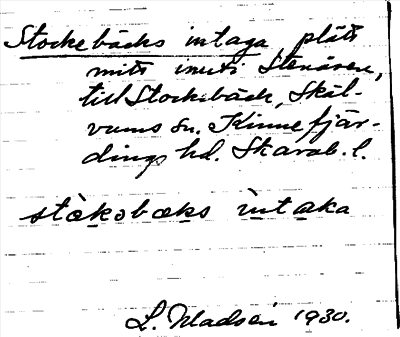 Stockebäcks intaga plåts
mitt inuti Stenåsen,
till Stockebäck, Skäl-
vums sn. Kinnefjär-
dings hd. Skarab. l.
stòkobæks ìntaka
L. Madsén 1930.